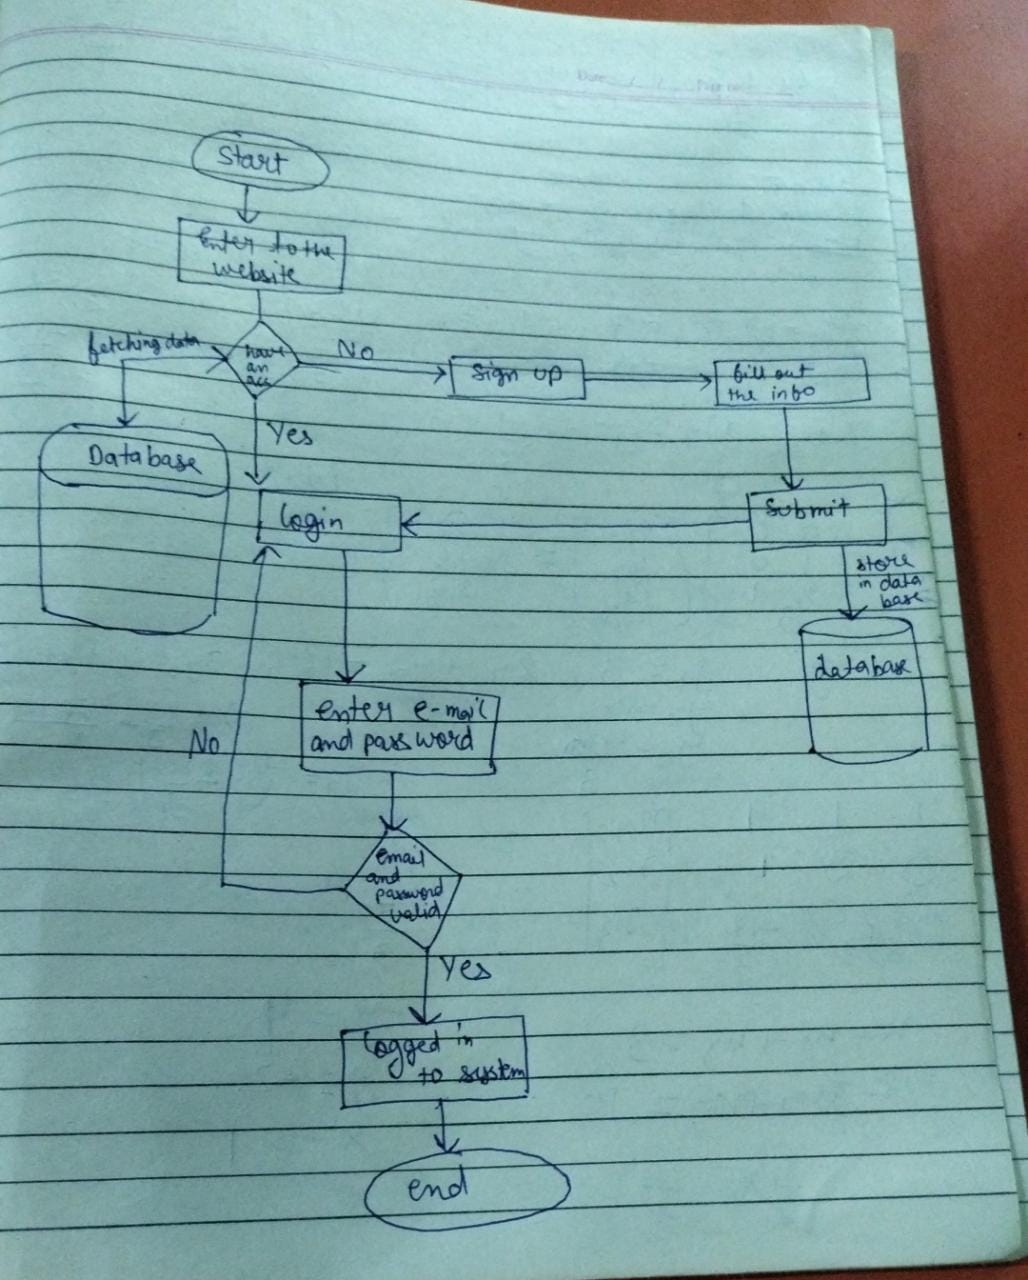 Date / / Page no
Start
Enter to the
website
fetching data
have
an
acc
No
Sign up
fill out
the info
Yes
Database
Login
Submit
store
in data
base
database
enter e-mail
and password
No
email
and
password
valid
Yes
Logged in
to system
end